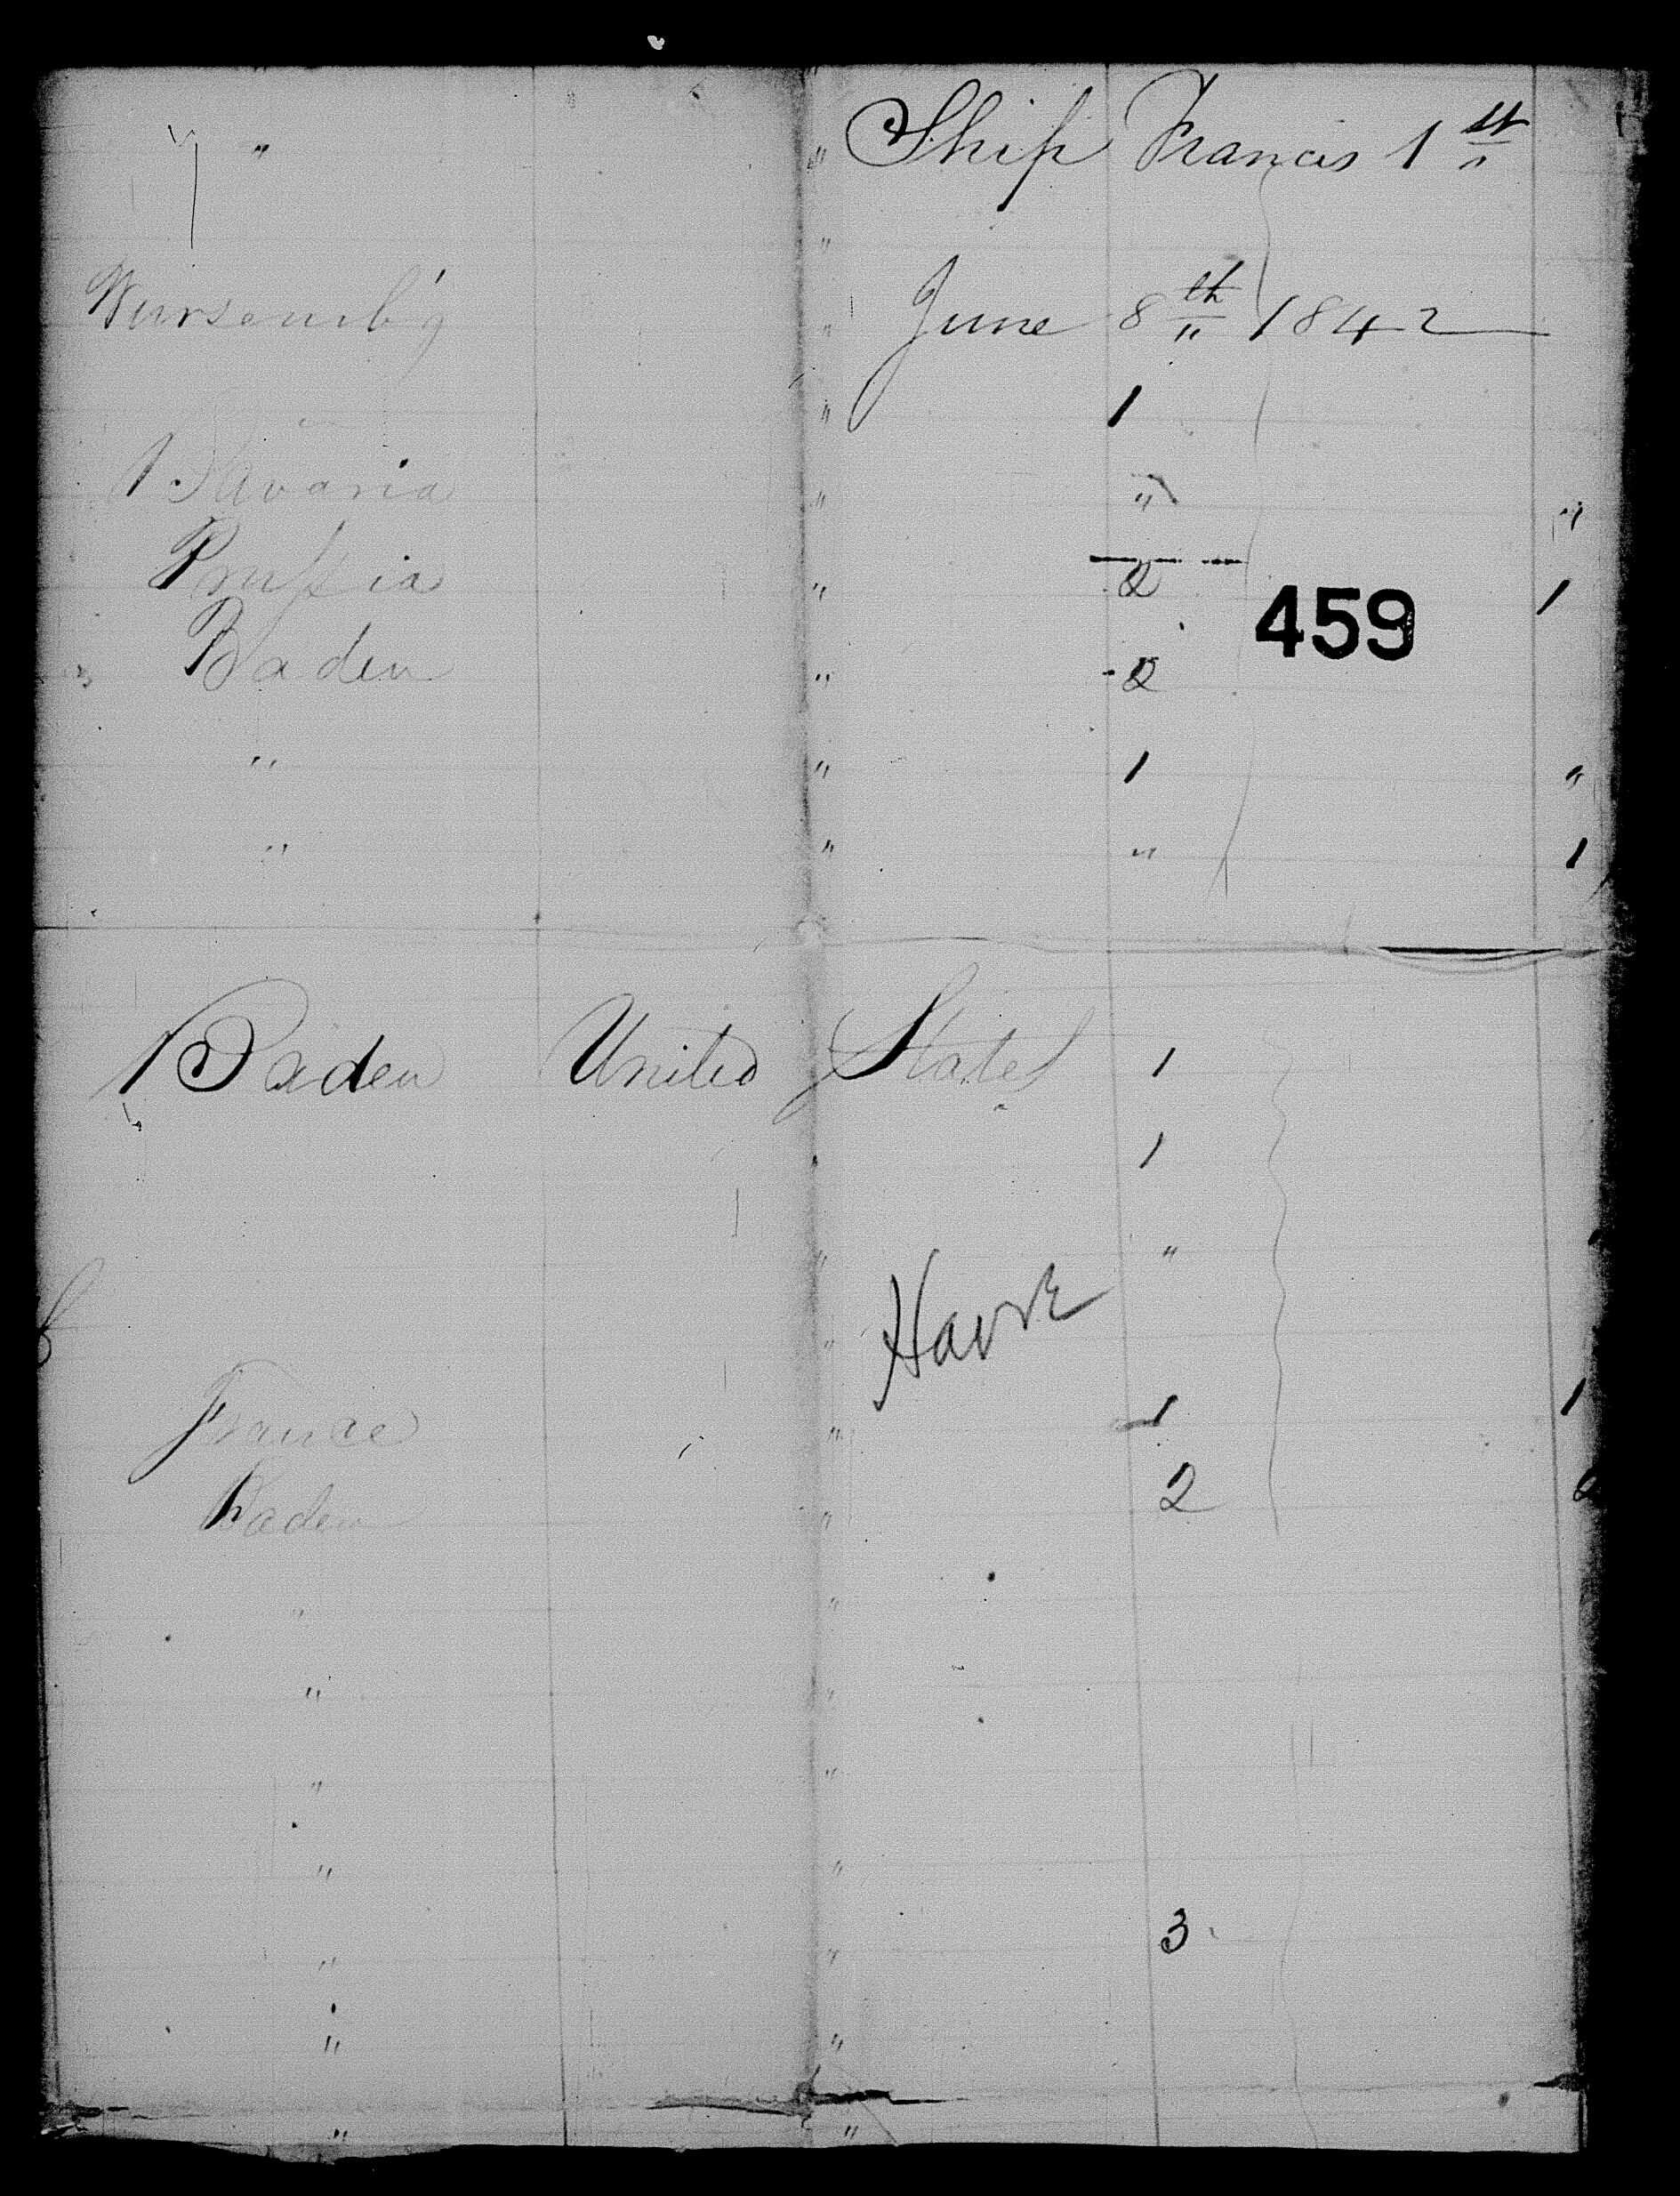 " " Ship Francis 1st
"
Wursemb'g " June 8th 1842
" 1
Bavaria " " "
Prussia " 2 1
459
Baden " 2
" " 1 "
" " " 1
Baden United States 1
1
" "
Havre
"
France " 1 1
Baden " 2 2
" "
" "
" "
" "
3
" "
" "
" "